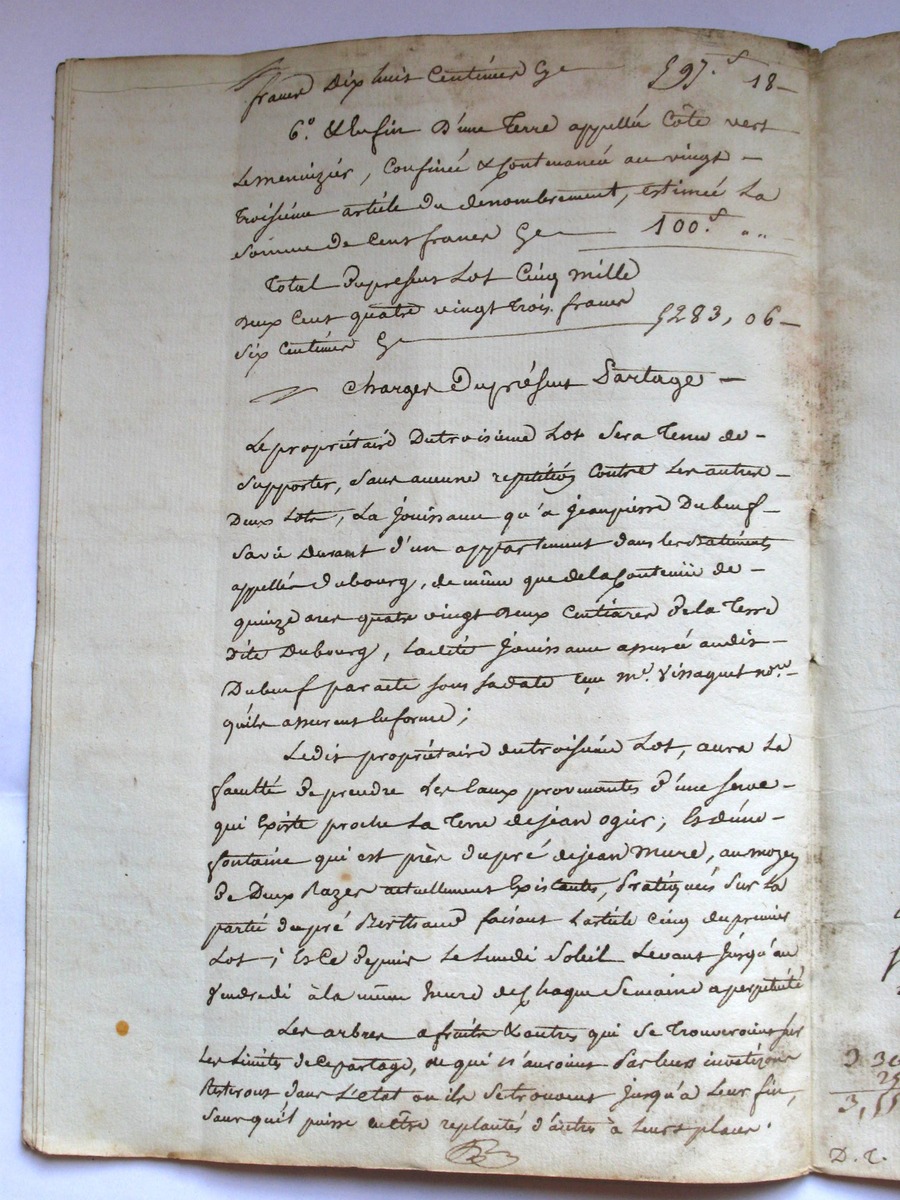 francs dix huit Centimes Cy 597.f 18
6.° & Enfin D'une Terre appellée Côte vert
Lemenuizier, Confinée & Contenancée au vingt
troisiéme article du dénombrement, estimée La
Somme de Cent francs Cy 100.f ""
Total Du présent Lot Cinq mille
deux Cent quatre vingt trois francs
Six Centimes Cy 5283, 06
Charges Du présent Partage
Le propriétaire Du troisieme Lot Sera Tenu de
Supporter, Sans aucune repétition Contre Les autres
Deux Lots, La Jouissance qu'a Jean pierre Duboeuf
Sa vie Durant d'un appartement dans les Batiments
appellés Dubourg, de même que de la Contenüe de
quinze ares quatre vingt deux Centiares De la Terre
Dite Dubourg, Ladite Jouissance assurée audit
Duboeuf par acte sous sa date reçu m.e Vissaguet no.re
qu'ils assurent En forme;
Ledit propriétaire du troisiéme Lot, aura La
faculté De prendre Les Eaux provenantes D'une Serve
qui Existe proche La Terre de jean ogier; Et d'une
fontaine qui est près du pré de jean Mure, au moyen
De Deux Razes actuellement Existantes, Pratiqueés Sur La
partie du pré Berthaud faisant L'article Cinq du premier
Lot; Et Ce Depuis Le Lundi Soleil Levant Jusqu'au
Vendredi à la même heure de Chaque Semaine a perpétuité
Les arbres a fruits & autres qui Se Trouveroient Sur
Les Limites de Ce partage, ou qui n'auroient Pas Leurs
Resteront dans L'état ou ils Se trouvent jusqu'a Leur fin,
Sans qu'il puisse en être replantés d'autres à Leurs places.
D. T.